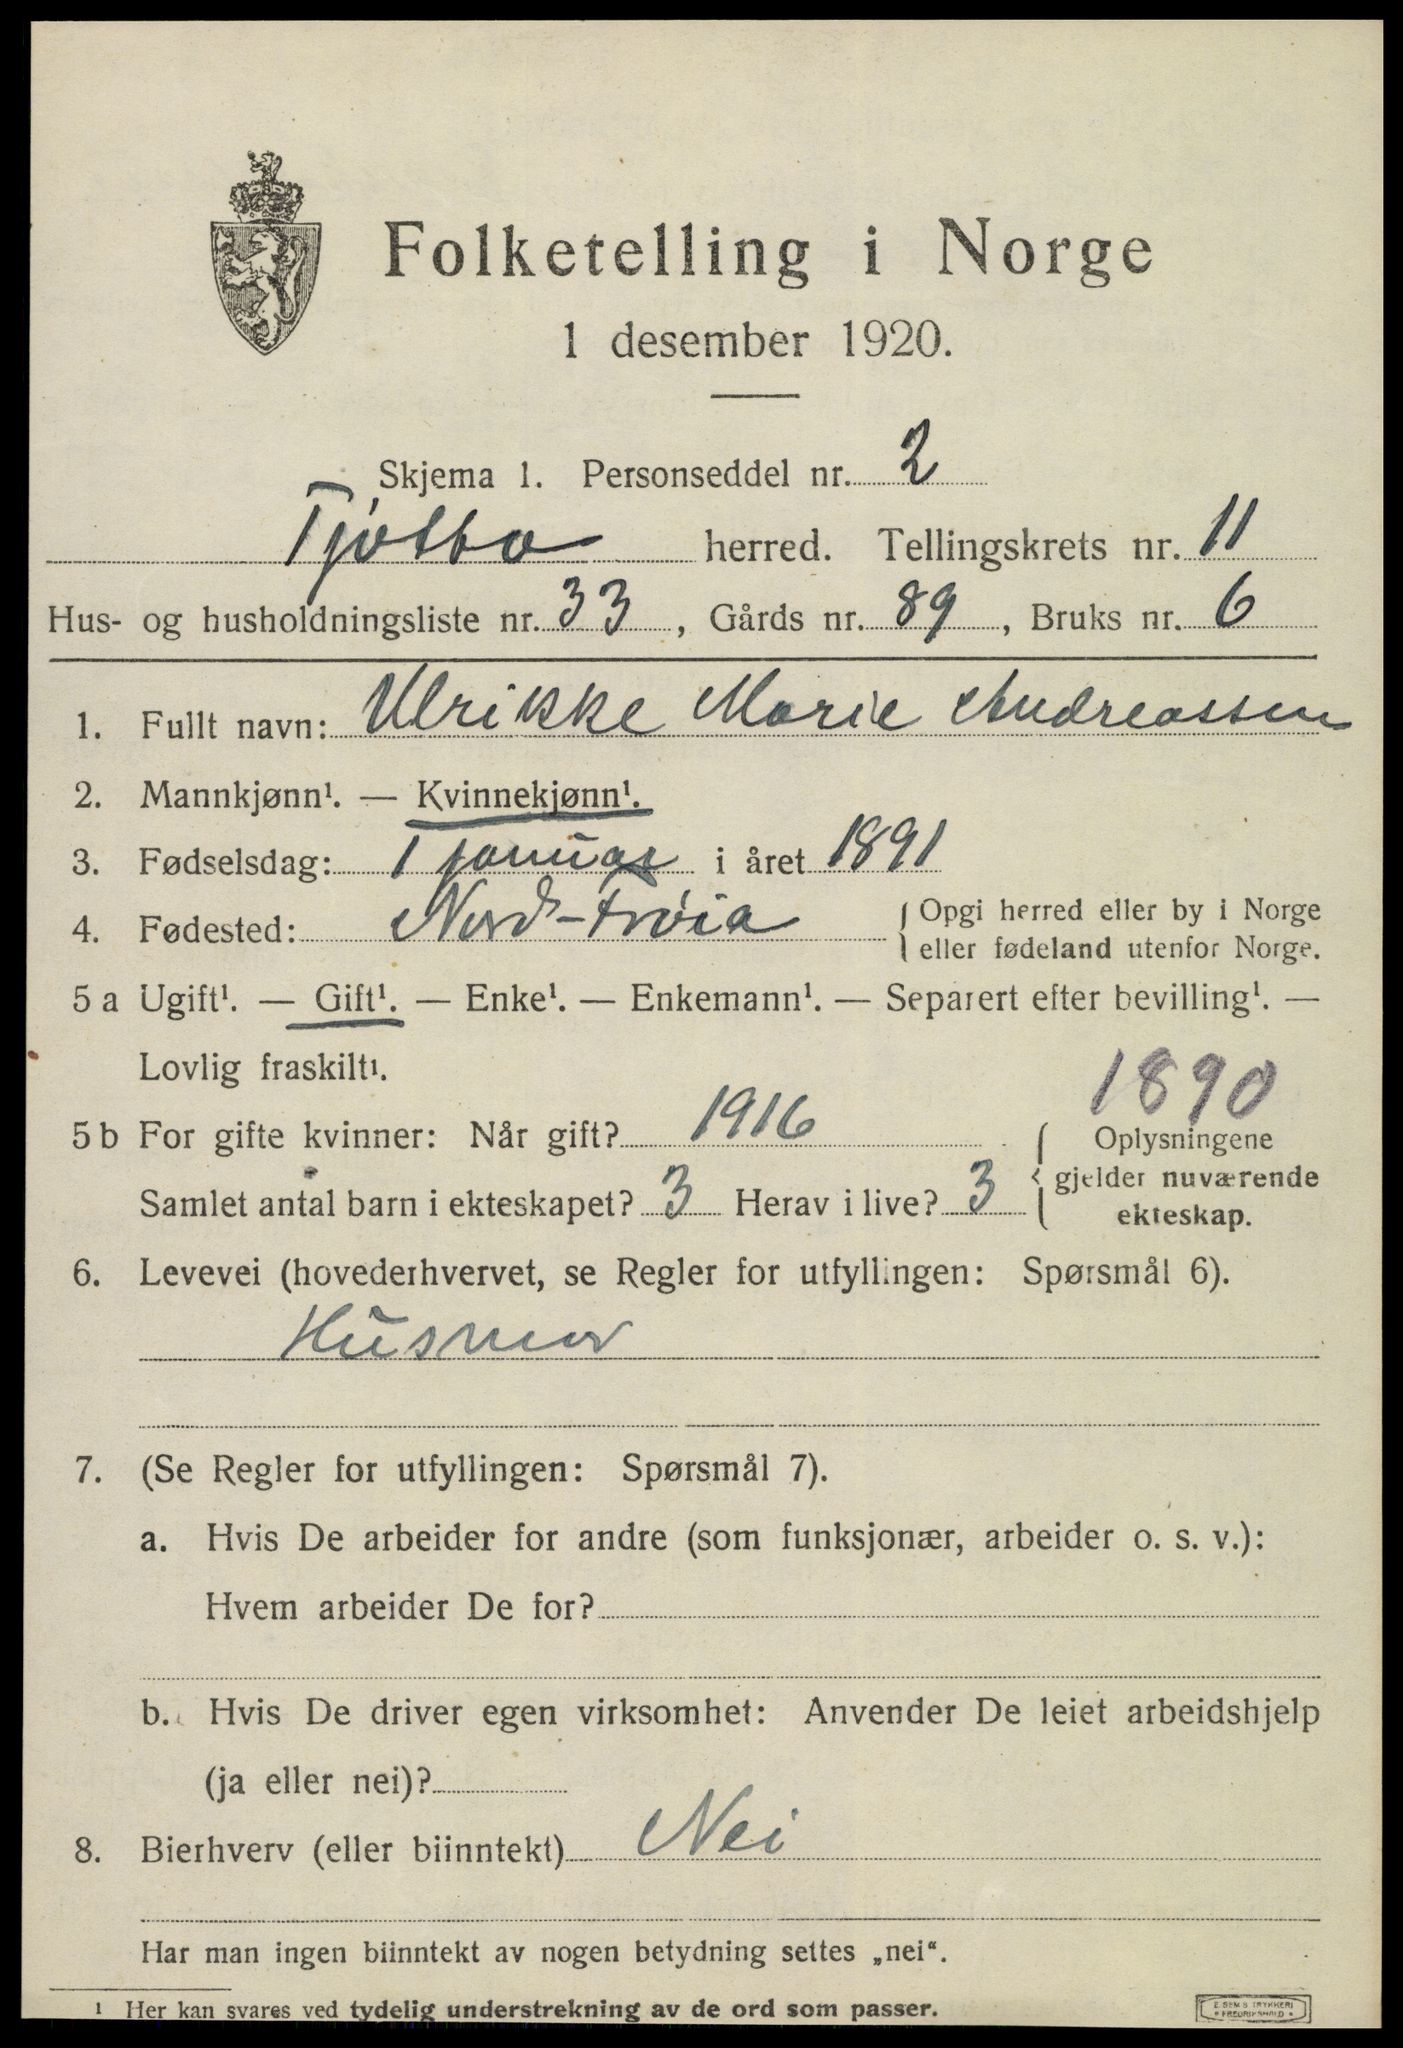 Folketelling i Norge
1 desember 1920.
Skjema 1. Personseddel nr. 2
Tjøtta herred. Tellingskrets nr. 11
Hus- og husholdningsliste nr. 33, Gårds nr. 89, Bruks nr. 6
1. Fullt navn: Ulrikke Marie Andreassen
2. Mannkjønn¹. — Kvinnekjønn¹.
3. Fødselsdag: 1 januar i året 1891
4. Fødested: Nord-Frøia { Opgi herred eller by i Norge
eller fødeland utenfor Norge.
5 a Ugift¹. — Gift¹. — Enke¹. — Enkemann¹. — Separert efter bevilling¹. —
Lovlig fraskilt¹.
1890
5 b For gifte kvinner: Når gift? 1916
Samlet antal barn i ekteskapet? 3 Herav i live? 3
{ Oplysningene
gjelder nuværende
ekteskap.
6. Levevei (hovederhvervet, se Regler for utfyllingen: Spørsmål 6).
Husmor
7. (Se Regler for utfyllingen: Spørsmål 7).
a. Hvis De arbeider for andre (som funksjonær, arbeider o. s. v.):
Hvem arbeider De for?
b. Hvis De driver egen virksomhet: Anvender De leiet arbeidshjelp
(ja eller nei)?
8. Bierhverv (eller biinntekt) Nei
Har man ingen biinntekt av nogen betydning settes „nei“.
¹ Her kan svares ved tydelig understrekning av de ord som passer.
E. SEM'S TRYKKERI
• FREDRIKSHALD •